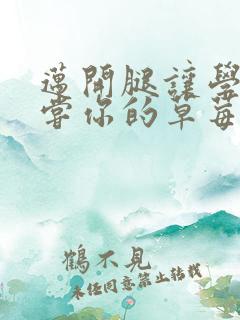 邁開腿讓學
嘗你的草莓
鶴不見
未经同意禁止转载